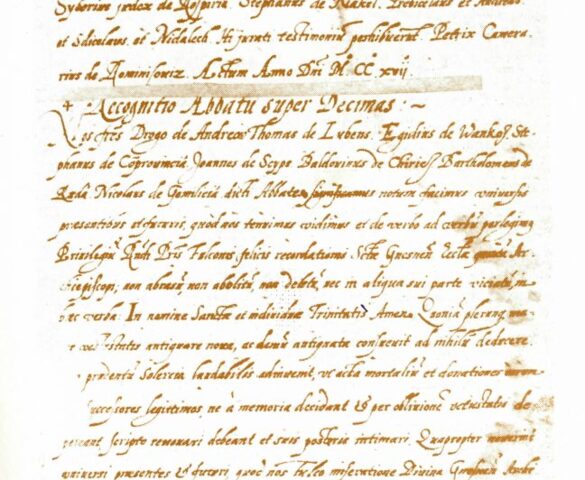 Syborius judex de Rospiria. Stephanus de Makol. Predicelaus et Andreas
et Sdiclaus, et Nidalech Hi jurati testimoniū perhibuerunt. Petrix Camera-
rius de Dominiforiz. Actum Anno Dñi M. CC xvij.
+ Recognitio Abbatū super Decimas: ~
Nos frēs Drogo de Andrew Thomas de Lubens. Egidius de Wankoz Ste-
phanus de Joannes de Scyps Balderinus de Bartholomeus de
Nicolaus de dicti Abbates notum facimus universis
presentibus et futuris, quod nos tenuimus vidimus et de verbo ad verbū perlegimus
Privilegiū Rn̄di Pris Fulconis, felicis recordationis. Sctæ Gnesneñ. Eccłæ quondā Ar-
chiepiscopi, non abrasū, non abolitū, non deletū, nec in aliqua sui parte viciatū, in
hæc verba: In nomine Sanctæ et individuæ Trinitatis Amen. Quoniā plerunq
vetustatis antiquare nova, et demū antiquata consuevit ad nihilū deducere.
prudentū Solercia laudabiliter adinvenit, ut acta mortaliū et donationes
successores legittimos, ne à memoria decidant & per oblivionē vetustatis de-
pereant scripto renovari debeant et suis posteris intimari. Quapropter noverint
universi presentes & futuri, quod nos miseratione Divina Gnesneñ Archi